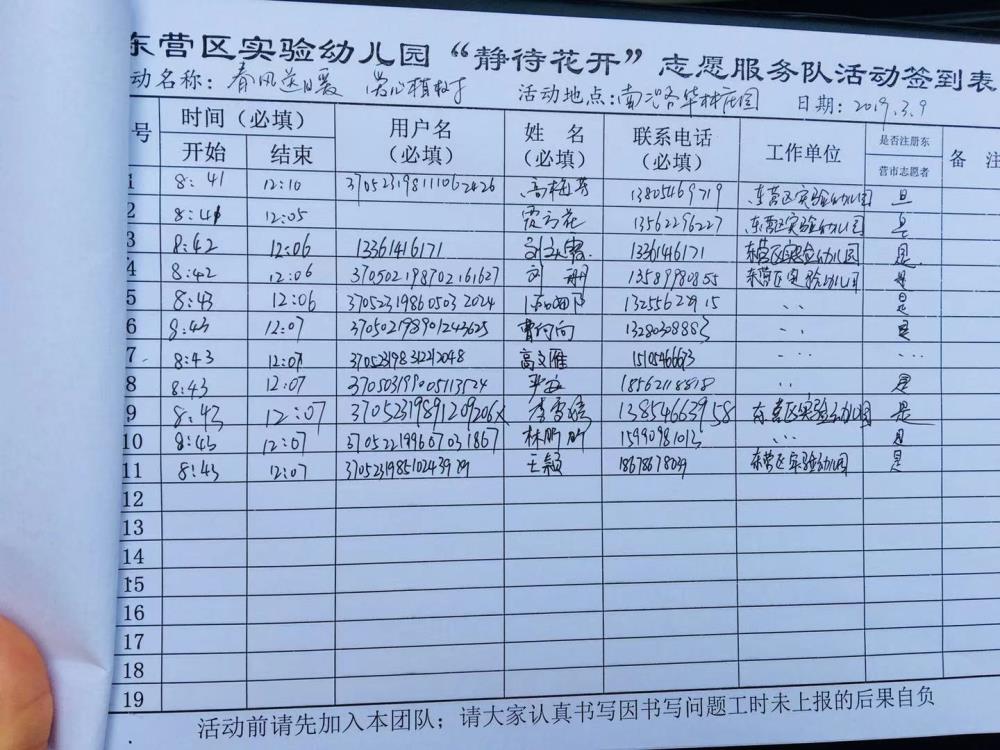 东营区实验幼儿园“静待花开”志愿服务队活动签到表
动名称：春风送暖 爱心植树 活动地点：南 华林庄园 日期：2019.3.9
号 时间（必填） 用户名（必填） 姓名（必填） 联系电话（必填） 工作单位 是否注册东营市志愿者 备注
开始 结束
1 8:41 12:10 13805469719 东营区实验幼儿园 是
2 8:41 12:05 13562296227 东营区实验幼儿园 是
3 8:42 12:06 13361416171 13361416171 东营区实验幼儿园 是
4 8:42 12:06 370502198702161627 刘 13589980855 东营区实验幼儿园 是
5 8:43 12:06 370523198605032024 是
6 8:43 12:07 370502198901243625 曹向向 13280308883 是
7 8:43 12:07 高文雁
8 8:43 12:07 18562118818 是
9 8:43 12:07 37052319891209206X 李雪 13854663958 东营区实验幼儿园 是
10 8:43 12:07 370522199667031867 林 15990981013 是
11 8:43 12:07 王颖 18678678039 东营区实验幼儿园 是
12
13
14
15
16
17
18
19
活动前请先加入本团队；请大家认真书写因书写问题工时未上报的后果自负